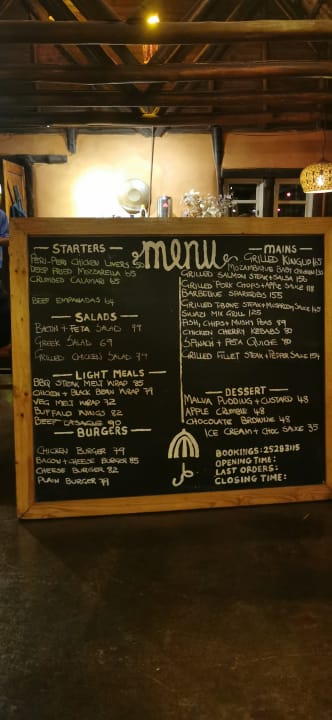 menu
STARTERS
PERI-PERI CHICKEN LIVERS 50
DEEP FRIED MOZZARELLA 65
CRUMBED CALAMARI 65
BEEF EMPANADAS 64
SALADS
BACON + FETA SALAD 77
GREEK SALAD 69
GRILLED CHICKEN SALAD 79
LIGHT MEALS
BBQ STEAK MELT WRAP 85
CHICKEN + BLACK BEAN WRAP 79
VEG MELT WRAP 72
BUFFALO WINGS 82
BEEF LASAGNE 90
BURGERS
CHICKEN BURGER 79
BACON + CHEESE BURGER 85
CHEESE BURGER 82
PLAIN BURGER 79
MAINS
GRILLED KINGKLIP
MOZAMBIQUE BABY CHICKEN
GRILLED SALMON STEAK + SALSA 155
GRILLED PORK CHOPS + APPLE SAUCE 118
BARBEQUE SPARERIBS 155
GRILLED TBONE STEAK + MUSHROOM SAUCE
SWAZI MIX GRILL 125
FISH, CHIPS + MUSHY PEAS 89
CHICKEN CHERRY KEBABS 90
SPINACH + FETA QUICHE 70
GRILLED FILLET STEAK + PEPPER SAUCE 154
DESSERT
MALVA PUDDING + CUSTARD 48
APPLE CRUMBLE 48
CHOCOLATE BROWNIE 48
ICE CREAM + CHOC SAUCE 35
BOOKINGS: 25283115
OPENING TIME:
LAST ORDERS:
CLOSING TIME: